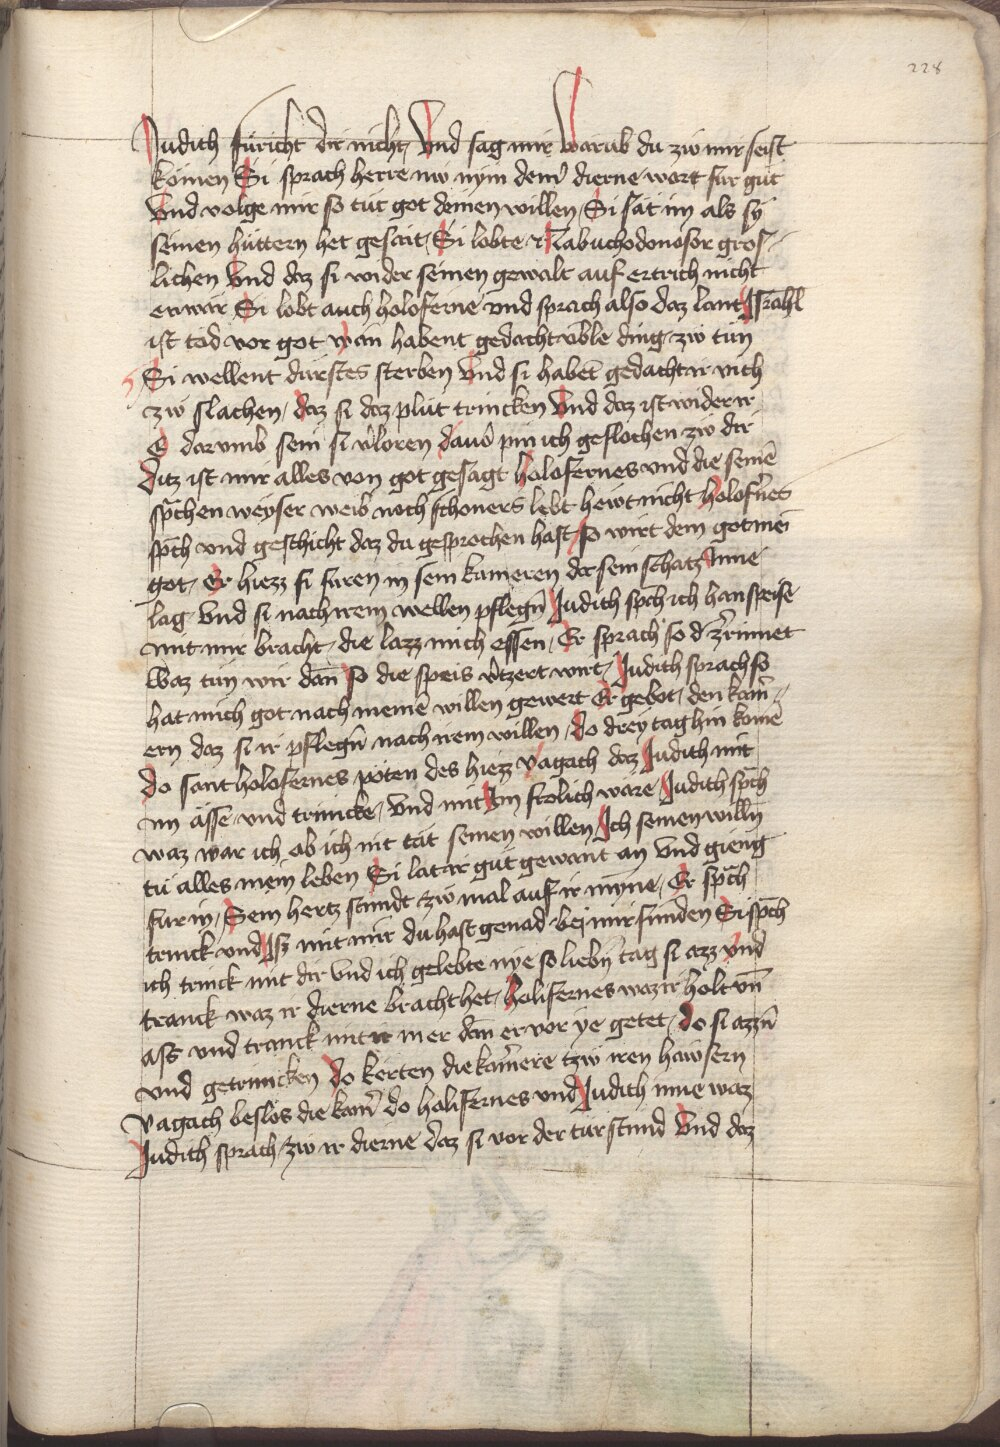 228
Judith fuͤricht dir nicht Und sag mir Warūb du zw mir seist
komen Si sprach herre nw nym deinͬ dierne wort fur gut
Und volge mir so tut got deinen willen Si sait im als sy
seinen huttern het gesait Si lobte Nabuchodonosor gros-
lichen Und daz si wider seinen gewalt auf ertrich nicht
enwar Si lobt auch holoferne und sprach also daz lant Israhel
ist tod vor got wan habent gedacht uble ding zw tun
Si wellent durstes sterben Und si habēt gedacht ir vich
zw slachen daz si daz plut trincken Und daz ist wider ir
E dar vmb sein si v̓loren dauō pin ich geflochen zw dir
ditz ist mir alles von got gesagt holofernes und die seinē
sp̄chen weyser weib noch schoners lebt hewt nicht holofn̓es
sp̄ch und geschicht daz du gesprochen hast so wirt dein got mei
got Er hiezz si furen in sein kameren dar sein schatz Inne
lag Und si nach irem wellen pflegn̄ Judith sp̄ch ich han speise
mit mir bracht die lazz mich essen Er sprach so d' zrinnet
Waz tun wir dan̄ so die speis v̓tzert wirt Judith sprach so
hat mich got nach meinē willen gewert Er gebot den kam̄-
ern daz si ir pflegn̄ nach irem willen do drey tag hin komē
do sant holofernes poten des hiezz vagach daz Judith mit
im ässe und trincke Und mit Im frolich ware Judith sp̄ch
waz war ich ob ich nit tät seinen willen Ich seinen willn̄
tu alles mein leben Si lat ir gut gewant an Und gieng
fur in Sein hertz stundt zw mal auf ir myne Er sp̄ch
trinck und Is mit mir du hast genad bei mir funden Si sp̄ch
ich trinck mit dir Und ich gelebte nye so liebn̄ tag si azz und
tranck waz ir dierne bracht het holifernes waz ir holt vn̄
ass und tranck mit ir mer dan er vor ye getet do si azzn̄
und getruncken do kerten die kam̓ere tzw iren hawsern
Vagach beslos die kam̓ do holifernes und Judith inne waz
Judith sprach zw ir dierne daz si vor der tur stund Und daz